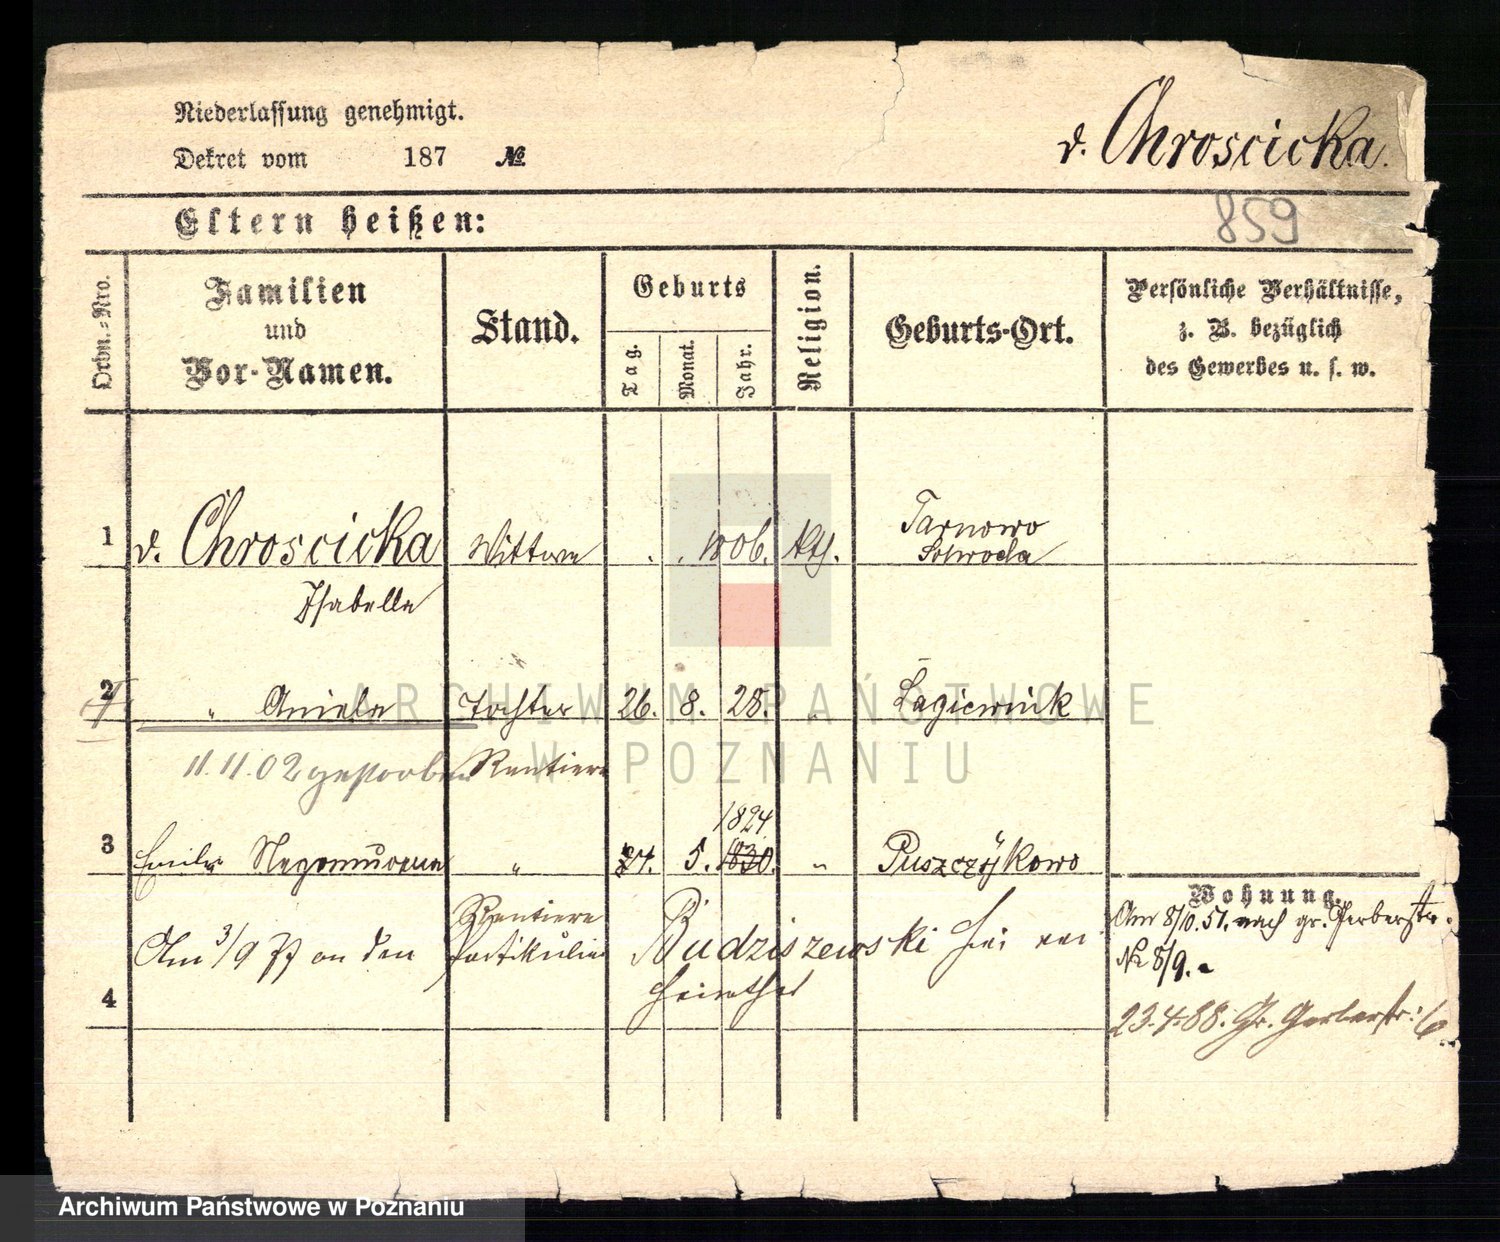 Niederlassung genehmigt.
Dekret vom 187 №
v. Chroscicka.
Eltern heißen:
859
Ordn.-Nro.
Familien
und
Vor-Namen.
Stand.
Geburts
Tag.
Monat.
Jahr.
Religion.
Geburts-Ort.
Persönliche Verhältnisse,
z. B. bezüglich
des Gewerbes u. s. w.
1 v. Chroscicka Wittwe kth. Tarnowo
Isabella
2 " Aniela Tochter 26. 8. 28. " Łagiewnik
11.11.02 gestorben Rentiere
3 Emilie " 5. 1830. "
1824
Puszczÿkowo
Wohnung.
Am 3/9 an den Budziszewski
4
Am 8/10. 51. nach gr. Gerberstr.
№ 8/9.
23.4.88. Gr. Gerberstr: 6.
ARCHIWUM PAŃSTWOWE
W POZNANIU
Archiwum Państwowe w Poznaniu